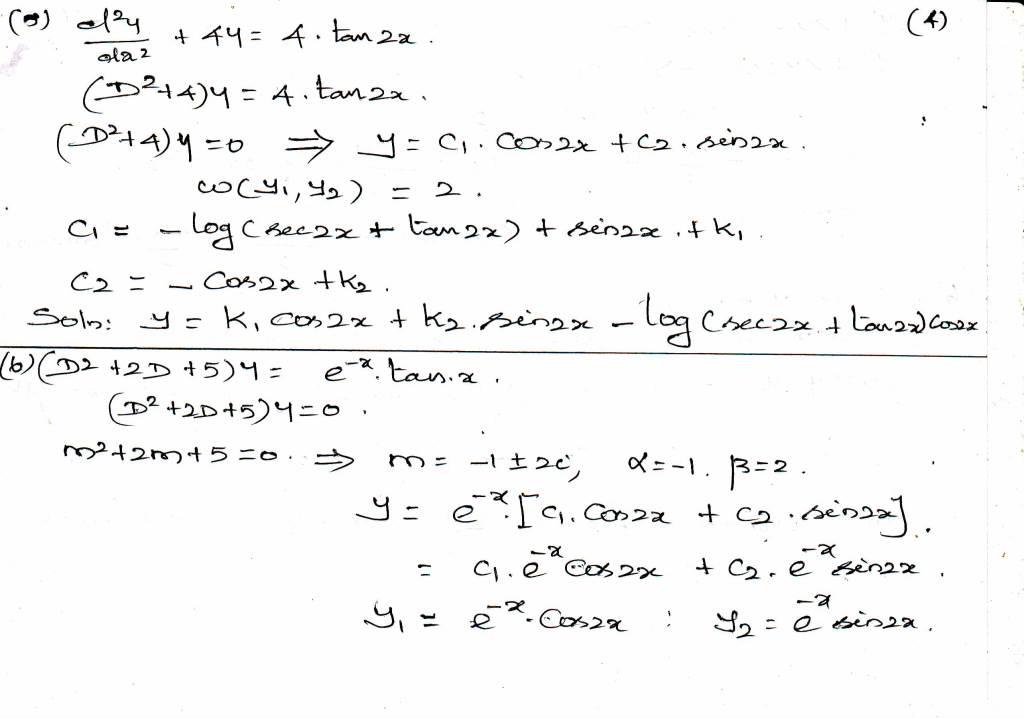 (a) d²y/dx² + 4y = 4 · tan 2x . (4)
(D²+4)y = 4 . tan 2x .
(D²+4)y = 0 ⇒ y = c₁ . cos 2x + c₂ . sin 2x .
ω(y₁, y₂) = 2 .
c₁ = - log (sec 2x + tan 2x) + sin 2x . + k₁ .
c₂ = - cos 2x + k₂ .
Soln: y = k₁ cos 2x + k₂ . sin 2x - log (sec 2x + tan 2x) cos 2x
(b) (D² + 2D + 5)y = e⁻ˣ . tan . x .
(D² + 2D + 5)y = 0 .
m² + 2m + 5 = 0 . ⇒ m = -1 ± 2i, α = -1 . β = 2 .
y = e⁻ˣ . [c₁ . cos 2x + c₂ . sin 2x] .
= c₁ . e⁻ˣ cos 2x + c₂ . e⁻ˣ sin 2x .
y₁ = e⁻ˣ . cos 2x : y₂ = e⁻ˣ sin 2x .